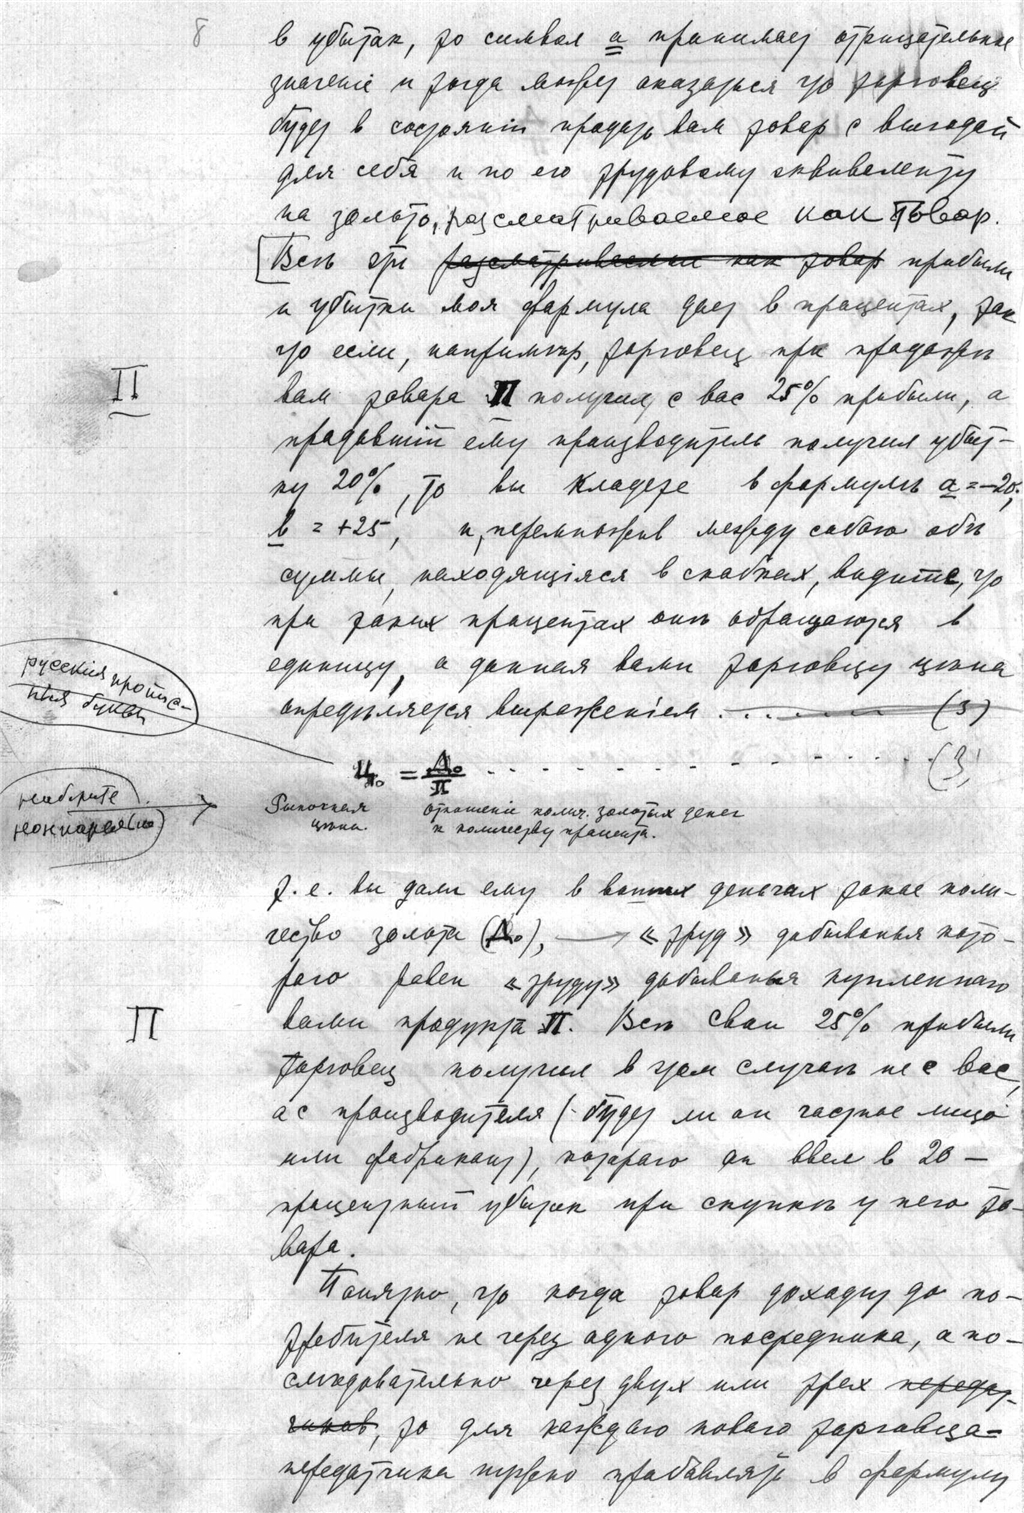 8
в убыток, то символ а принимает отрицательное
значеніе и тогда может оказаться что торговец
будет в состояніи продать вам товар с выгодой
для себя и по его трудовому эквиваленту
на золото, рассматриваемое как товар.
Всѣ эти рассматриваемыя как товар прибыли
и убытки моя формула дает в процентах, так
что если, напримѣр, торговец при продажѣ
II
вам товара П получил с вас 25% прибыли, а
продавшій ему производитель получил убыт-
ку 20%, то вы кладете в формулѣ а = -20,
в = +25, и, перемножив между собою обѣ
суммы, находящіяся в скобках, видите, что
при таких процентах онѣ обращаются в
единицу, а данная вами торговцу цѣна
опредѣляется выраженіем . . . . . (3)
русскія пропис-
ныя буквы
Цп₀ = Д₀/П . . . . . . . . . . (3)
наберите
нонпарелью
Рыночная цѣна.
отношеніе колич. золотых денег
к количеству продукта.
т. е. вы дали ему в ваших деньгах такое коли-
чество золота (Д₀), «труд» добыванья кото-
раго равен «труду» добыванья купленнаго
П
вами продукта П. Всѣ свои 25% прибыли
торговец получил в этом случаѣ не с вас,
а с производителя (будет ли он частное лицо
или фабрикант), котораго он ввел в 20-
процентный убыток при скупкѣ у него то-
вара.
Понятно, что когда товар доходит до по-
требителя не через одного посредника, а по-
слѣдовательно через двух или трех передат-
чиков, то для каждаго новаго торговца-
передатчика нужно прибавлять в формулу